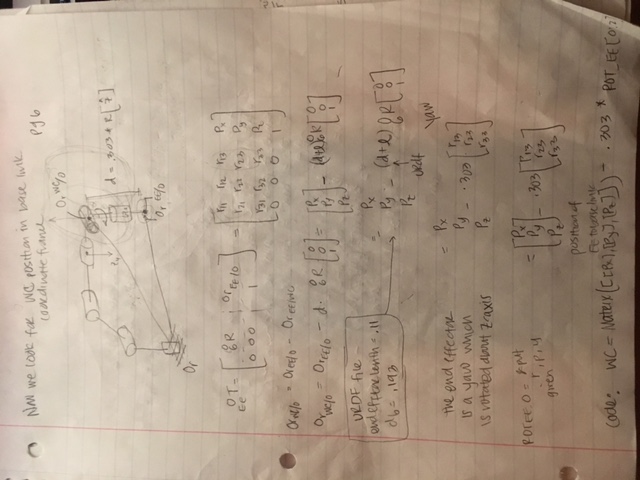 Now we look for WC position in base link
coordinate frame
pg 6
O, WC/O
d = .303 * R [
Or EE/O
Or
O T = [ 0 6 R | Or EE/O ; 0 0 0 | 1 ] = [ r11 r12 r13 Px
EE
r21 r22 r23 Py
r31 r32 r33 Pz
0 0 0 1 ]
Or WC/O = Or EE/O - Or EE/WC
Or WC/O = Or EE/O - d · 0 6 R [0 0 1] = [Px Py Pz] - (d+l) 0 6 R [0 0 1]
URDF file
end effector length = .11
d6 = .193
= Px Py Pz - (d+l) 0 6 R [0 0 1]
urdf
yaw
the end effector
is a yaw which
is rotated about z-axis
= Px Py Pz - .303 [r13 r23 r33]
given r, p, y
= [Px Py Pz] - .303 [r13 r23 r33]
position of
EE to base link
code: WC = Matrix([[Px],[Py],[Pz]]) - .303 * ROT_EE[0:2